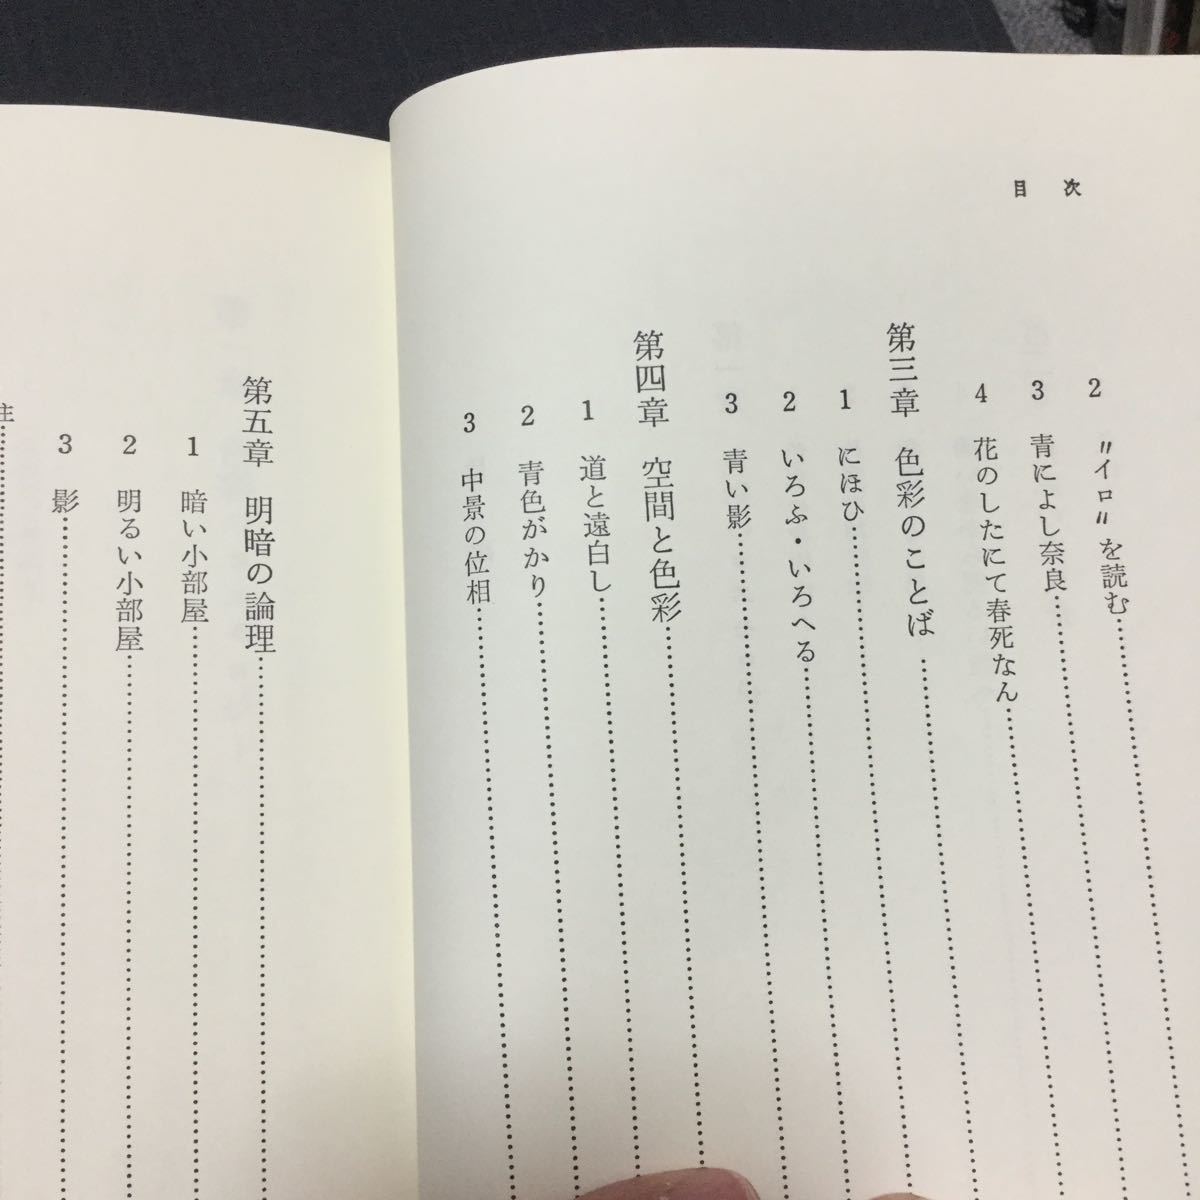 目次
2 〝イロ〟を読む
3 青によし奈良
4 花のしたにて春死なん
第三章 色彩のことば
1 にほひ
2 いろふ・いろへる
3 青い影
第四章 空間と色彩
1 道と遠白し
2 青色がかり
3 中景の位相
第五章 明暗の論理
1 暗い小部屋
2 明るい小部屋
3 影
註